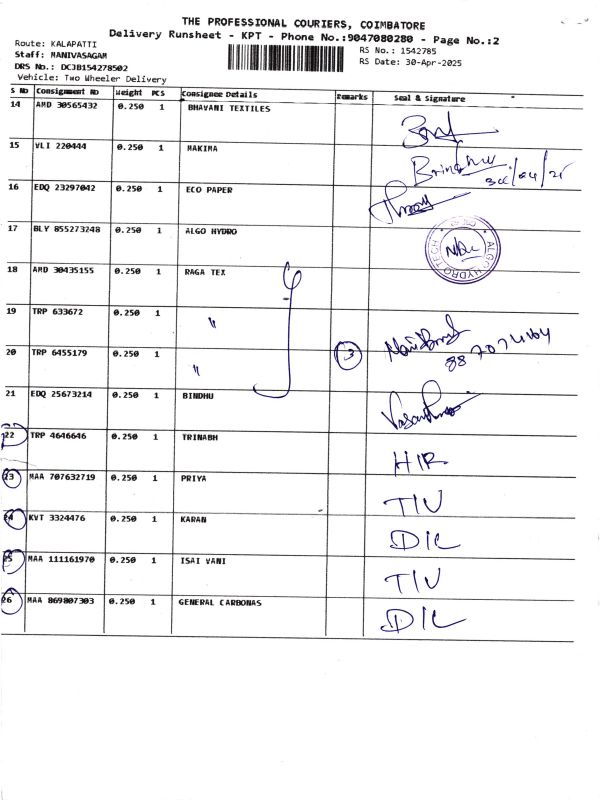 THE PROFESSIONAL COURIERS, COIMBATORE
Delivery Runsheet - KPT - Phone No.:9047080280 - Page No.:2
Route: KALAPATTI
RS No.: 1542785
Staff: MANIVASAGAM
RS Date: 30-Apr-2025
DRS No.: DCJB154278502
Vehicle: Two Wheeler Delivery
S No Consignment No Weight PCS Consignee Details Remarks Seal & Signature
14 AMD 30565432 0.250 1 BHAVANI TEXTILES
15 VLI 220444 0.250 1 MAKIMA
30/04/25
16 EDQ 23297042 0.250 1 ECO PAPER
17 BLY 855273248 0.250 1 ALGO HYDRO
ALGO HYDRO TECH
18 AMD 30435155 0.250 1 RAGA TEX
19 TRP 633672 0.250 1 "
20 TRP 6455179 0.250 1 " 3
21 EDQ 25673214 0.250 1 BINDHU
22 TRP 4646646 0.250 1 TRINABH HIR
23 MAA 707632719 0.250 1 PRIYA TIV
24 KVT 3324476 0.250 1 KARAN DIL
25 MAA 111161970 0.250 1 ISAI VANI TIV
26 MAA 869807303 0.250 1 GENERAL CARBONAS DIL